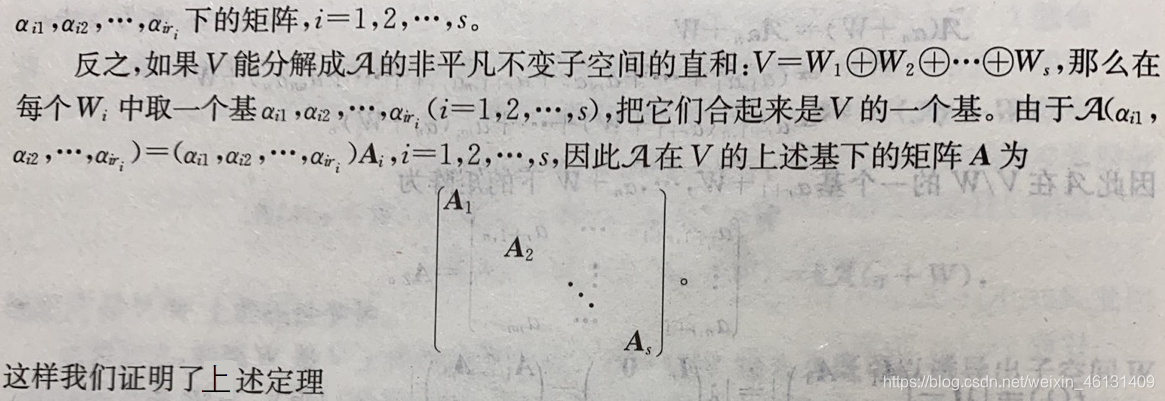 α_{i1},α_{i2},⋯,α_{ir_i}下的矩阵,i=1,2,⋯,s。
反之,如果V能分解成𝒜的非平凡不变子空间的直和:V=W₁⊕W₂⊕⋯⊕W_s,那么在
每个W_i中取一个基α_{i1},α_{i2},⋯,α_{ir_i}(i=1,2,⋯,s),把它们合起来是V的一个基。由于𝒜(α_{i1},
α_{i2},⋯,α_{ir_i})=(α_{i1},α_{i2},⋯,α_{ir_i})A_i,i=1,2,⋯,s,因此𝒜在V的上述基下的矩阵A为
A₁
A₂
⋱ 。
A_s
这样我们证明了上述定理
https://blog.csdn.net/weixin_46131409